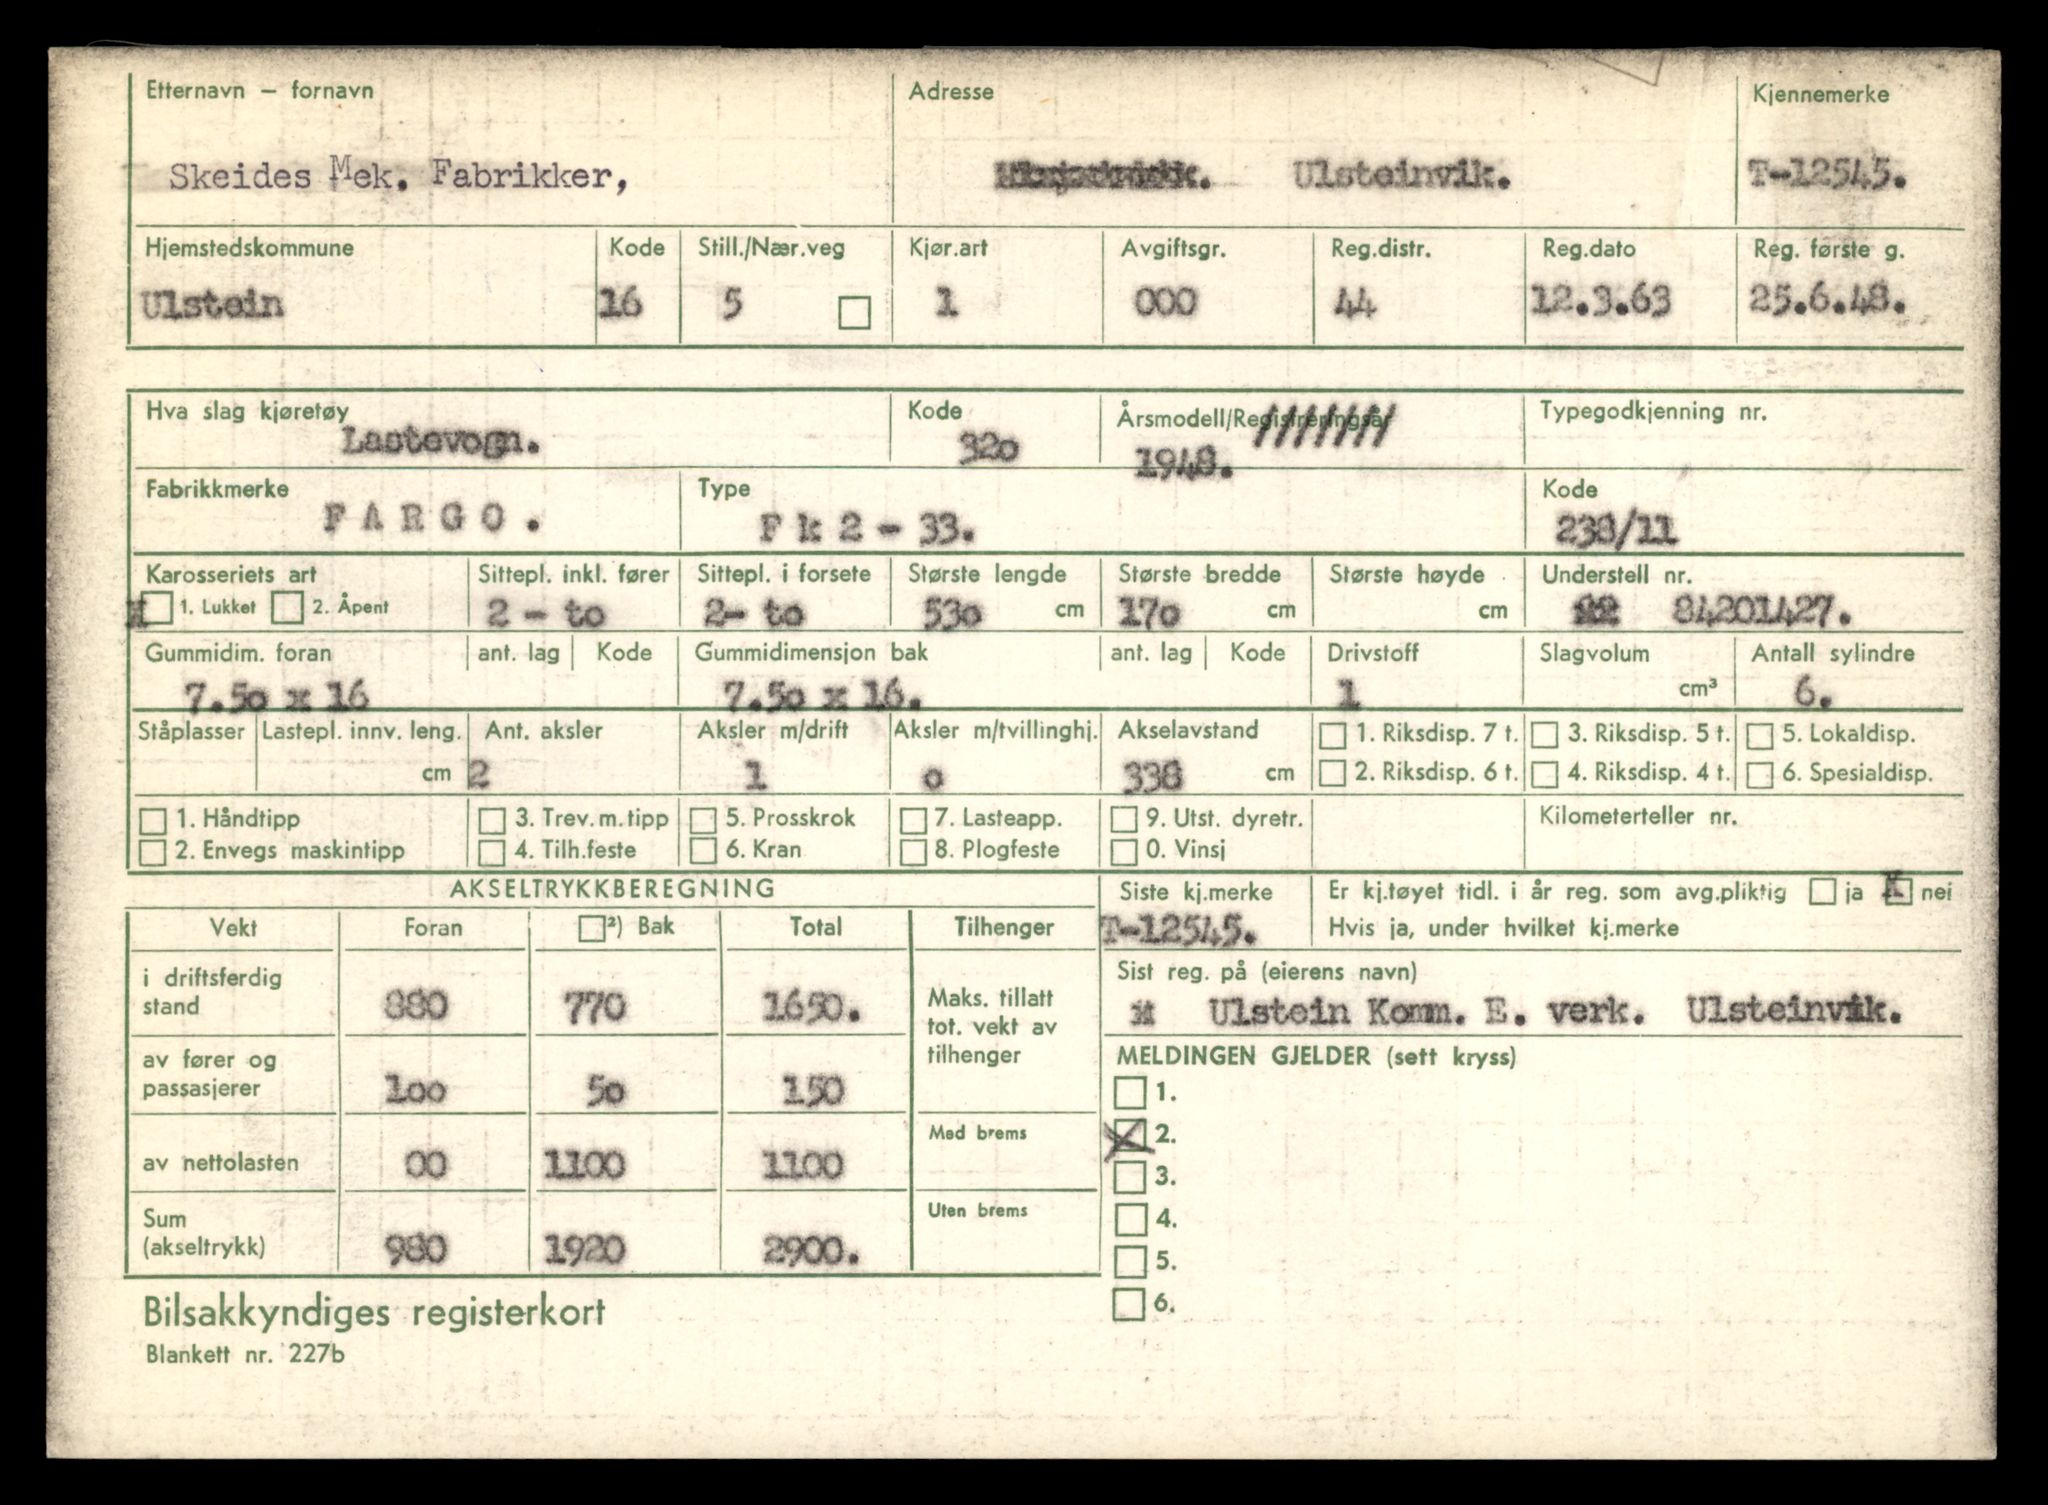 Etternavn – fornavn Adresse Kjennemerke
Skeides Mek. Fabrikker, Ulsteinvik. T-12545.
Hjemstedskommune Kode Still./Nær.veg Kjør.art Avgiftsgr. Reg.distr. Reg.dato Reg. første g.
Ulstein 16 5 1 000 44 12.3.63 25.6.48.
Hva slag kjøretøy Kode Årsmodell/Registreringsår Typegodkjenning nr.
Lastevogn. 320 1948.
Fabrikkmerke Type Kode
FARGO. F k 2 - 33. 238/11
Karosseriets art Sittepl. inkl. fører Sittepl. i forsete Største lengde Største bredde Største høyde Understell nr.
1. Lukket 2. Åpent 2 - to 2- to 530 cm 170 cm cm 84201427.
Gummidim. foran ant. lag Kode Gummidimensjon bak ant. lag Kode Drivstoff Slagvolum Antall sylindre
7.50 x 16 7.50 x 16. 1 cm³ 6.
Ståplasser Lastepl. innv. leng. Ant. aksler Aksler m/drift Aksler m/tvillinghj. Akselavstand 1. Riksdisp. 7 t. 3. Riksdisp. 5 t. 5. Lokaldisp.
cm 2 1 o 338 cm 2. Riksdisp. 6 t. 4. Riksdisp. 4 t. 6. Spesialdisp.
1. Håndtipp 3. Trev.m.tipp 5. Prosskrok 7. Lasteapp. 9. Utst. dyretr. Kilometerteller nr.
2. Envegs maskintipp 4. Tilh.feste 6. Kran 8. Plogfeste 0. Vinsj
AKSELTRYKKBEREGNING Siste kj.merke Er kj.tøyet tidl. i år reg. som avg.pliktig ja X nei
Vekt Foran ²) Bak Total Tilhenger T-12545. Hvis ja, under hvilket kj.merke
i driftsferdig stand 880 770 1650. Maks. tillatt tot. vekt av tilhenger
Sist reg. på (eierens navn)
Ulstein Komm. E. verk. Ulsteinvik.
av fører og passasjerer 100 50 150
MELDINGEN GJELDER (sett kryss)
1.
av nettolasten 00 1100 1100 Med brems
X 2.
3.
Sum (akseltrykk) 980 1920 2900. Uten brems
4.
5.
6.
Bilsakkyndiges registerkort
Blankett nr. 227b